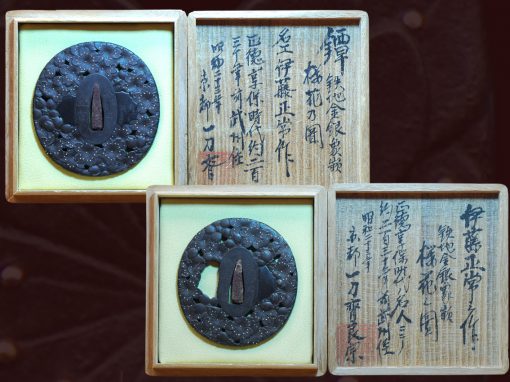 鐔
鉄地金銀象嵌
桜花乃圖
名工伊藤正常作
正徳享保時代約二百
三十年前武州住
昭和二十三年
京都 一刀齋
伊藤正常之作
鉄地金銀象嵌
桜花之圖
正徳享保時代名人ニシテ
約二百三十年前武州住
昭和二十三年
京都 一刀齋